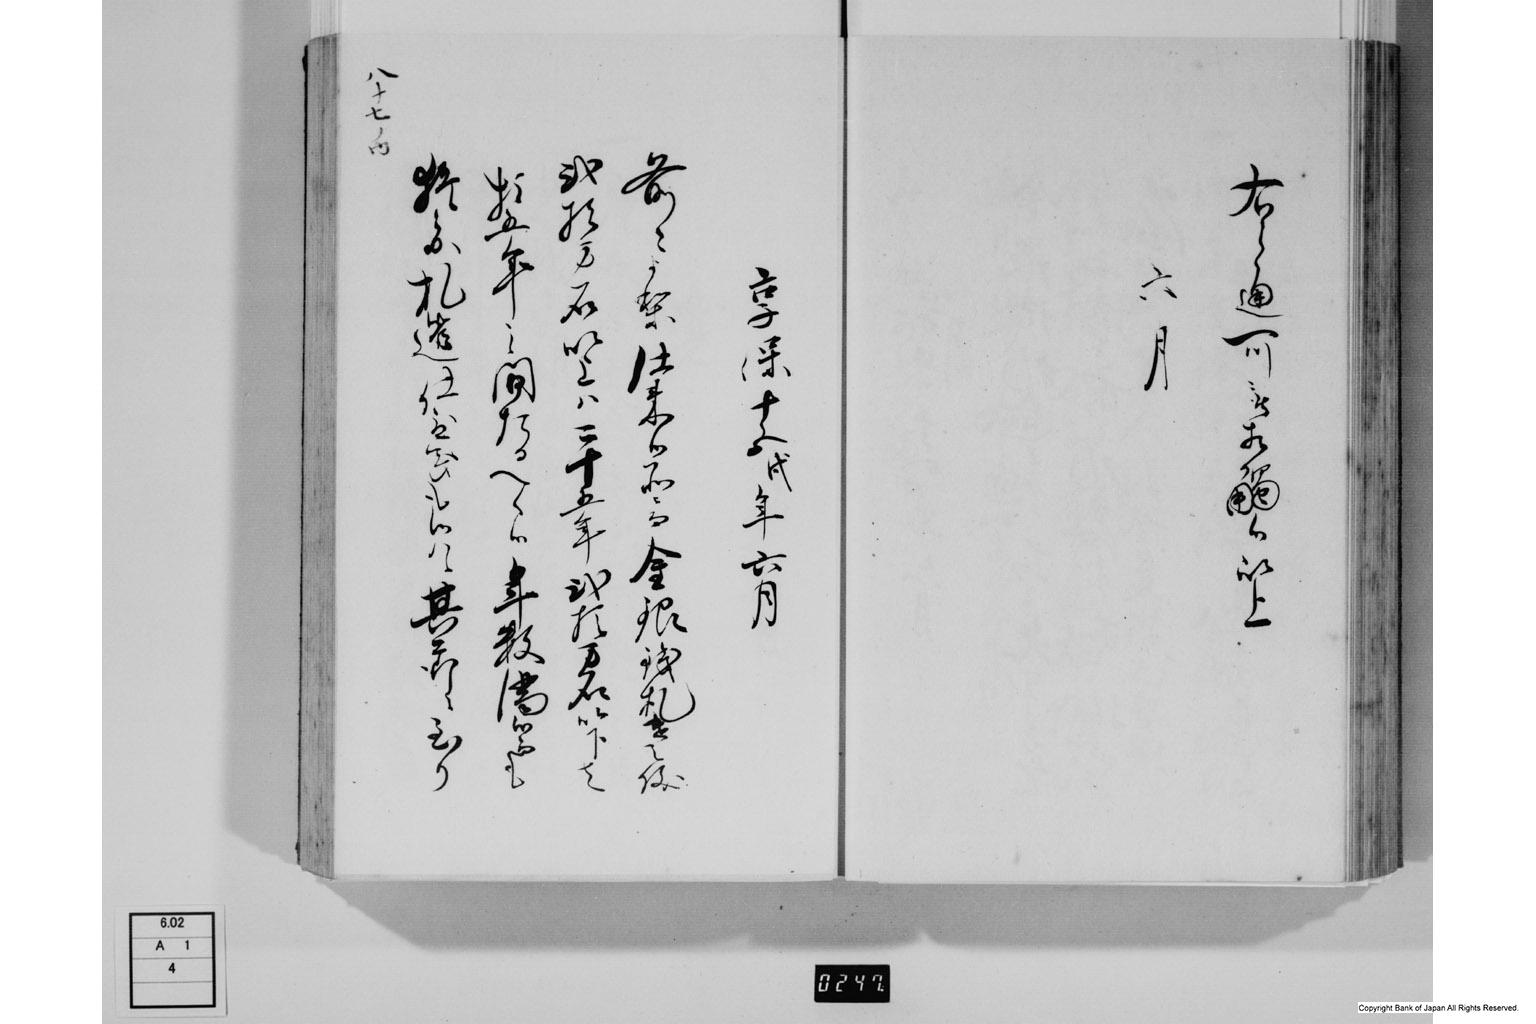 右之通可被相觸候以上
六月
享保十五戌年六月
前々より禁仕来候所之金銀銭札遣之儀
弐拾万石以上ハ二十五年弐拾万石以下者
拾五年之間たるへく候年数済候而も
猶亦札遣仕度候ハヽ其節ニ至り
八十七ノ内
6.02
A 1
4
0247
Copyright Bank of Japan All Rights Reserved.